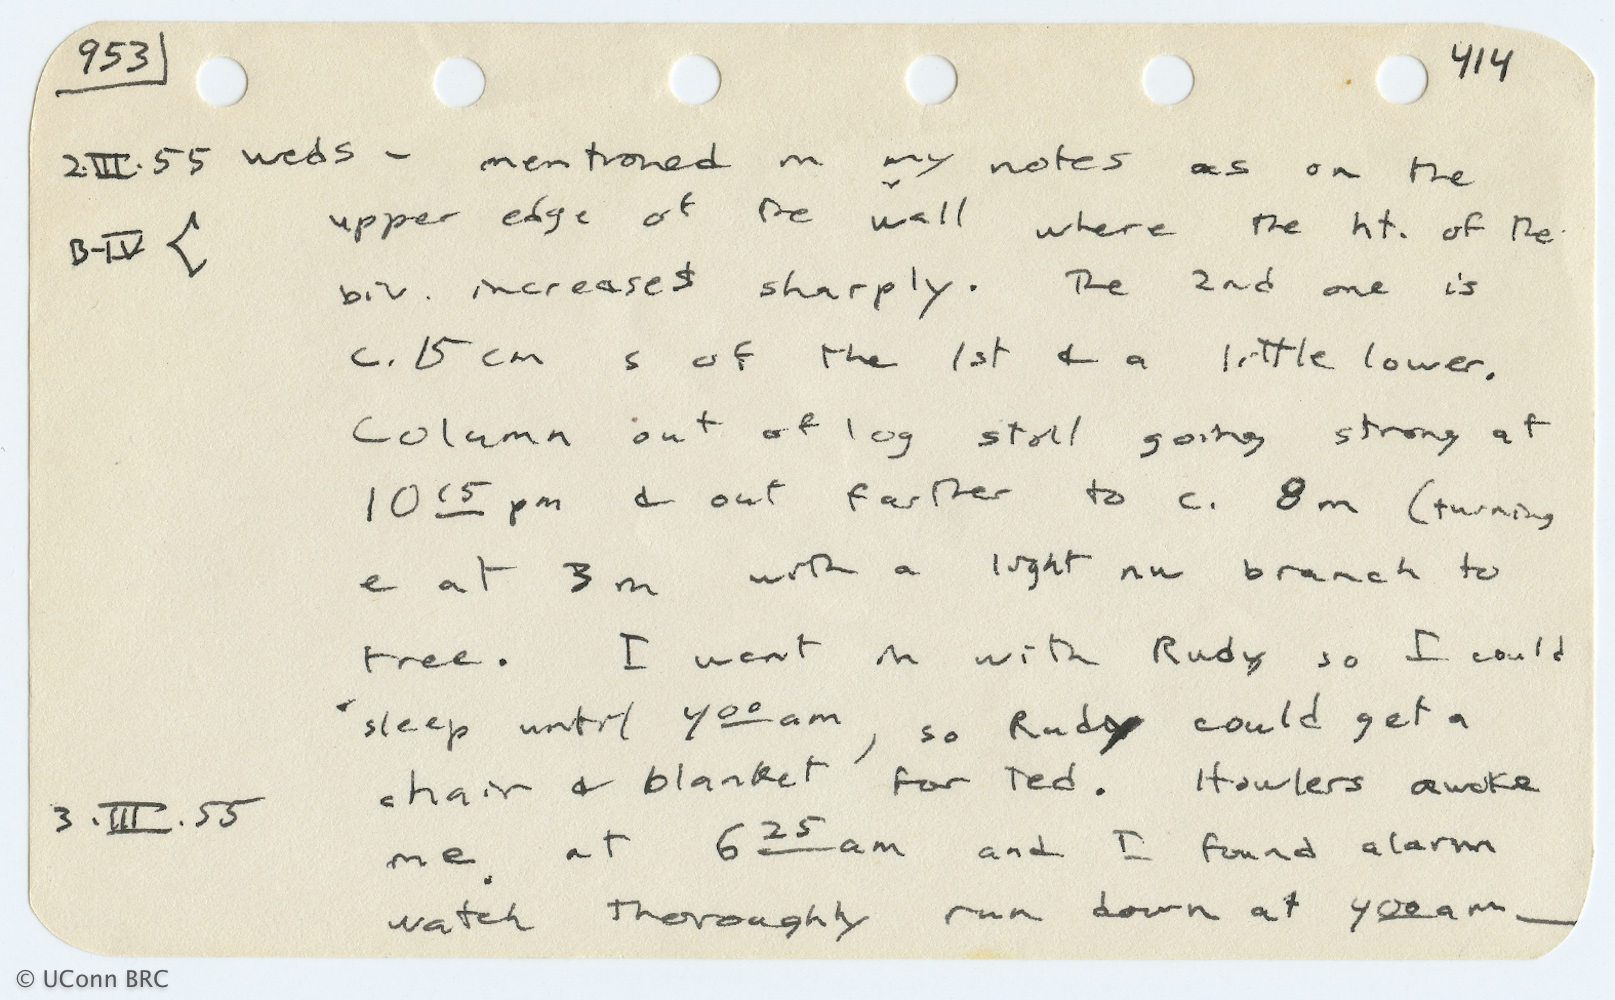 953 414
2.III.55 weds - mentioned in my notes as on the
B-IV { upper edge of the wall where the ht. of the
biv. increases sharply. The 2nd one is
c. 15 cm s of the 1st & a little lower.
Column out of log still going strong at
10 15 pm & out farther to c. 8 m (turning
e at 3 m with a light nw branch to
tree. I went in with Rudy so I could
sleep until 4 00 am, so Rudy could get a
chair & blanket for Ted. Howlers awoke
3.III.55 me at 6 25 am and I found alarm
watch thoroughly run down at 4 00 am —
© UConn BRC